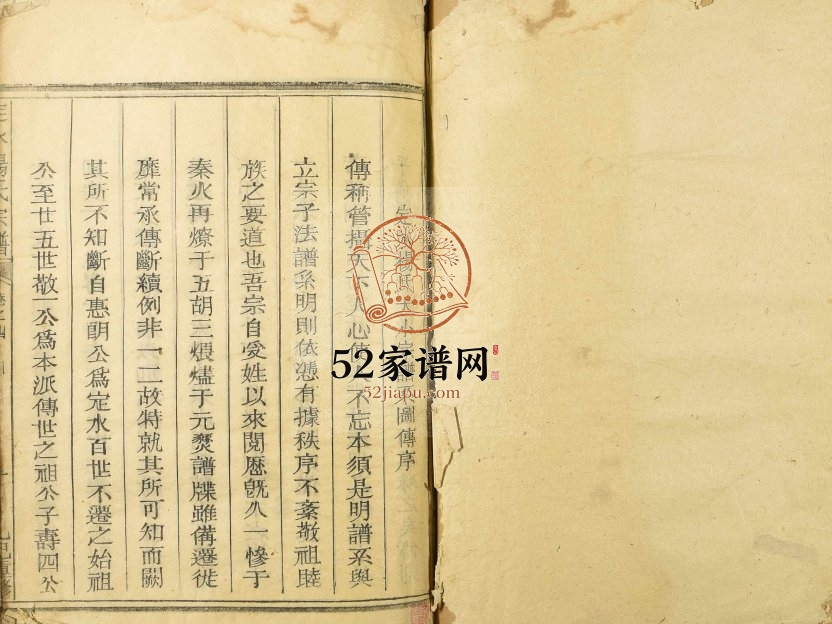 圖傳序
傳稱管攝天下人心使不忘本須是明譜系與
立宗子法譜系明則依憑有據秩序不紊敬祖睦
族之要道也吾宗自受姓以來閱歷旣久一慘于
秦火再燎于五胡三煨燼于元燹譜牒雖備遷徙
靡常承傳斷續例非一二故特就其所可知而闕
其所不知斷自惠朗公爲定水百世不遷之始祖
公至廿五世敬一公爲本派傳世之祖公子壽四公
水楊氏宗譜
卷之四
52家谱网
52jiapu.com